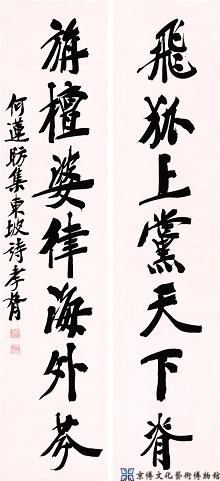 飛狐上黨天下脊
旃檀婆律海外芬
何蓮昉集東坡詩孝胥
京博文化藝術博物館